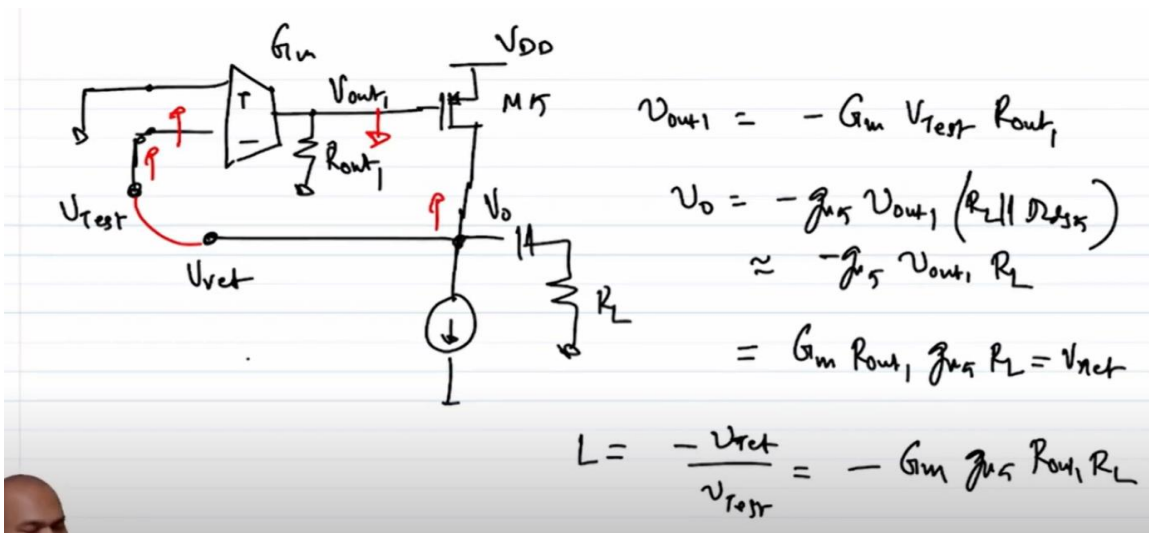 Gm
VDD
Vout1
M5
+
−
Rout1
VTest
Vo
Vret
RL
vout1 = - Gm VTest Rout1
vo = - gm5 vout1 (RL || rds5)
≈ -gm5 vout1 RL
= Gm Rout1 gm5 RL = vret
L = - vret / vTest = - Gm gm5 Rout1 RL